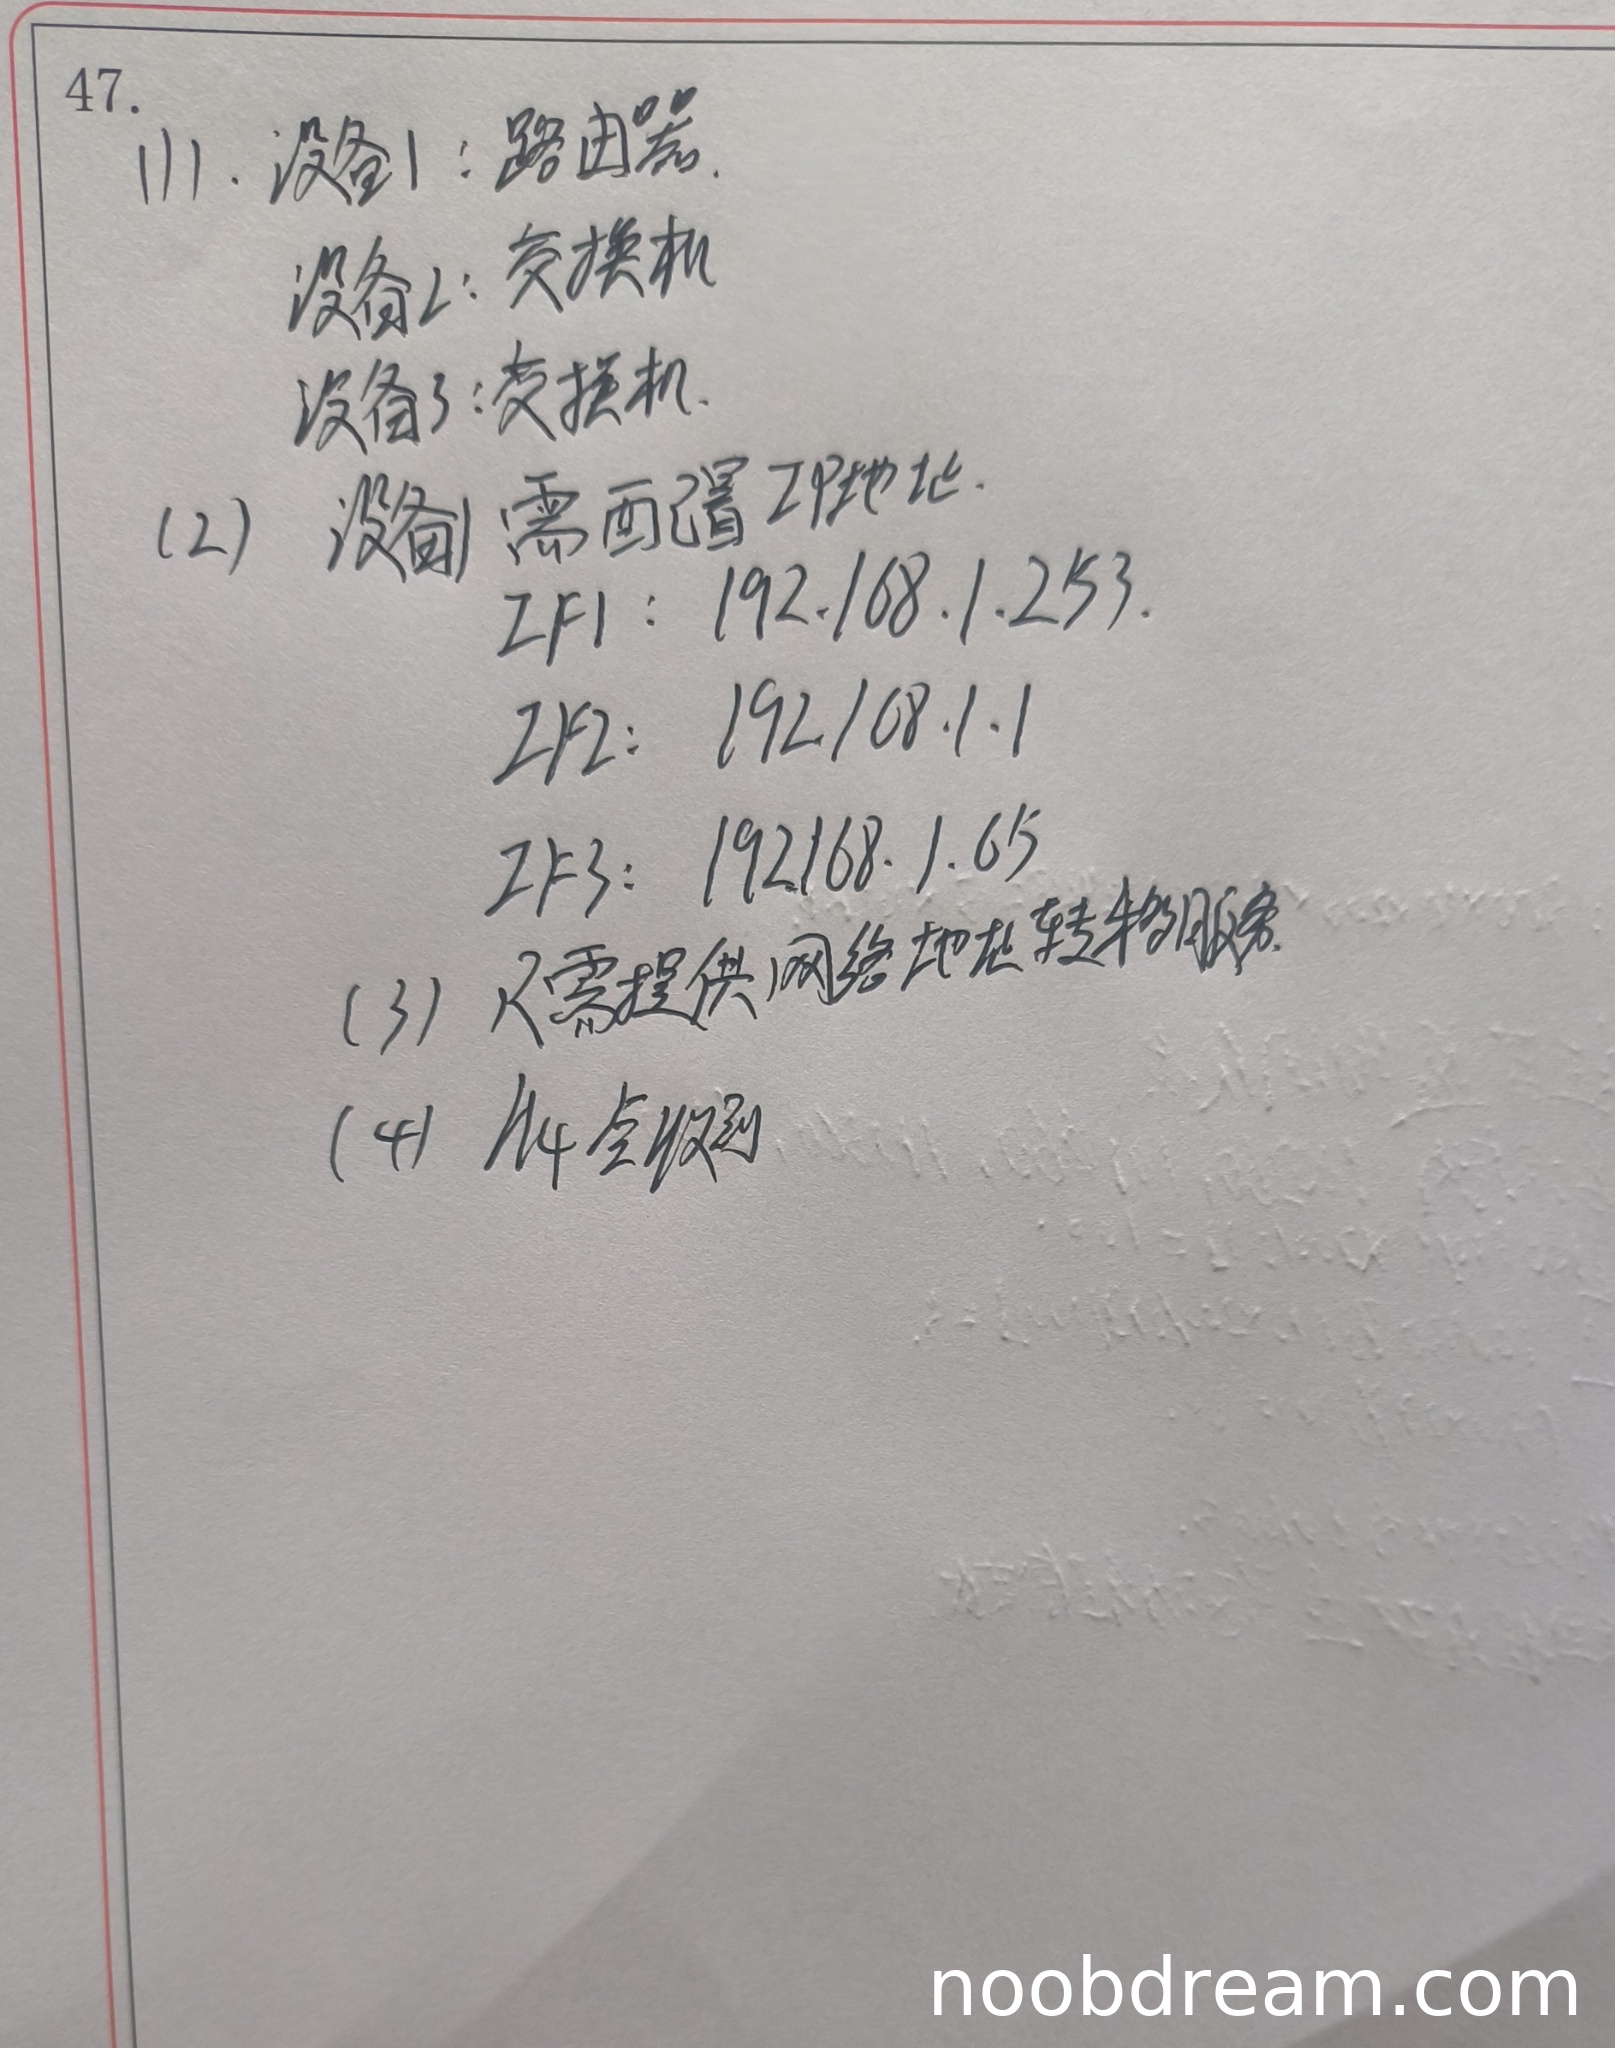 47.
(1). 设备1：路由器.
设备2：交换机
设备3：交换机.
(2) 设备1需配置IP地址.
IF1：192.168.1.253.
IF2：192.168.1.1
IF3：192.168.1.65
(3) R需提供网络地址转换服务.
(4) H4会收到
noobdream.com